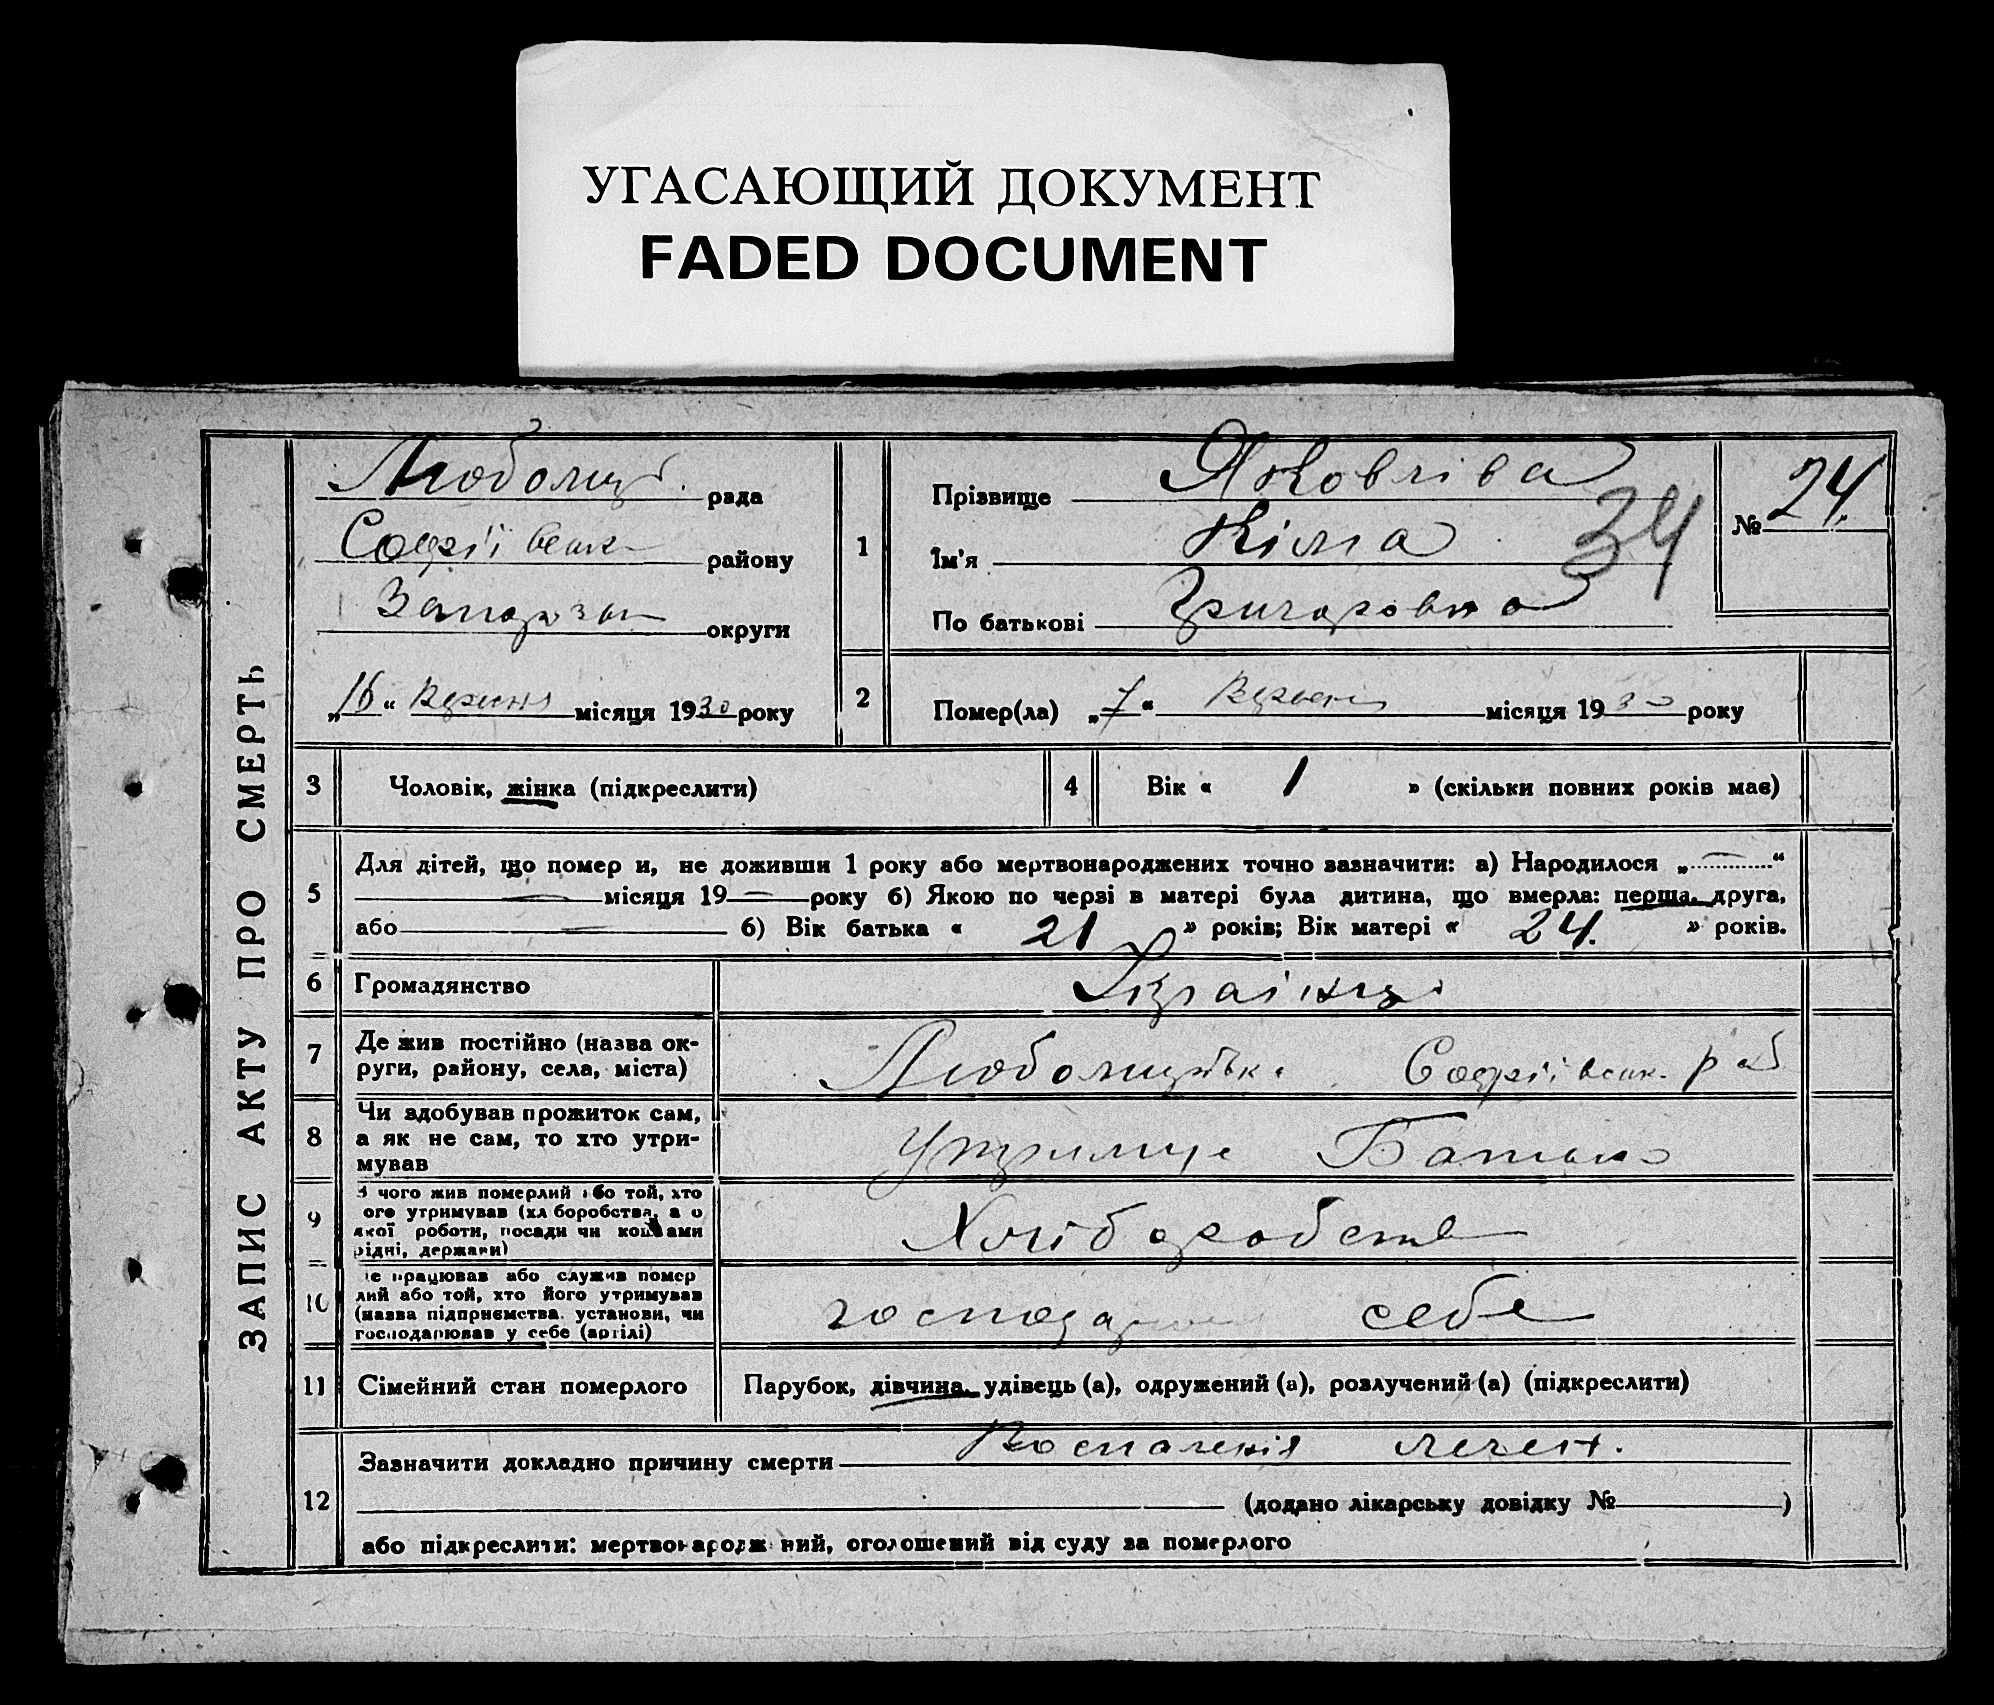 УГАСАЮЩИЙ ДОКУМЕНТ
FADED DOCUMENT
ЗАПИС АКТУ ПРО СМЕРТЬ
рада
Софіївськ району
округи
„16“ місяця 1930 року
1
Прізвище Яковліва
Ім'я Кіма
По батькові Григоровна
34
№ 24.
2
Помер(ла) „7“ місяця 1930 року
3 Чоловік, жінка (підкреслити)
4 Вік « 1 » (скільки повних років має)
5
Для дітей, що помер и, не доживши 1 року або мертвонароджених точно зазначити: а) Народилося „ — “
— місяця 19 — року б) Якою по черзі в матері була дитина, що вмерла: перша, друга,
або — б) Вік батька « 21 » років; Вік матері « 24. » років.
6 Громадянство Україиці
7
Де жив постійно (назва ок-
руги, району, села, міста)
Софіївськ. рай
8
Чи здобував прожиток сам,
а як не сам, то хто утри-
мував
Утримує Батько
9
З чого жив померлий або той, хто
ого утримував (хл боробства, а о
якої роботи, посади чи коштами
рідні, держави)
Хліборобств
10
е працював або служив помер
лий або той, хто його утримував
(назва підприємства, установи, чи
господарював у себе (артілі)
себе
11 Сімейний стан померлого Парубок, дівчина, удівець (а), одружений (а), розлучений (а) (підкреслити)
12
Зазначити докладно причину смерти Воспаленія леген.
(додано лікарську довідку № )
або підкреслити: мертвонародж ний, оголошений від суду за померлого